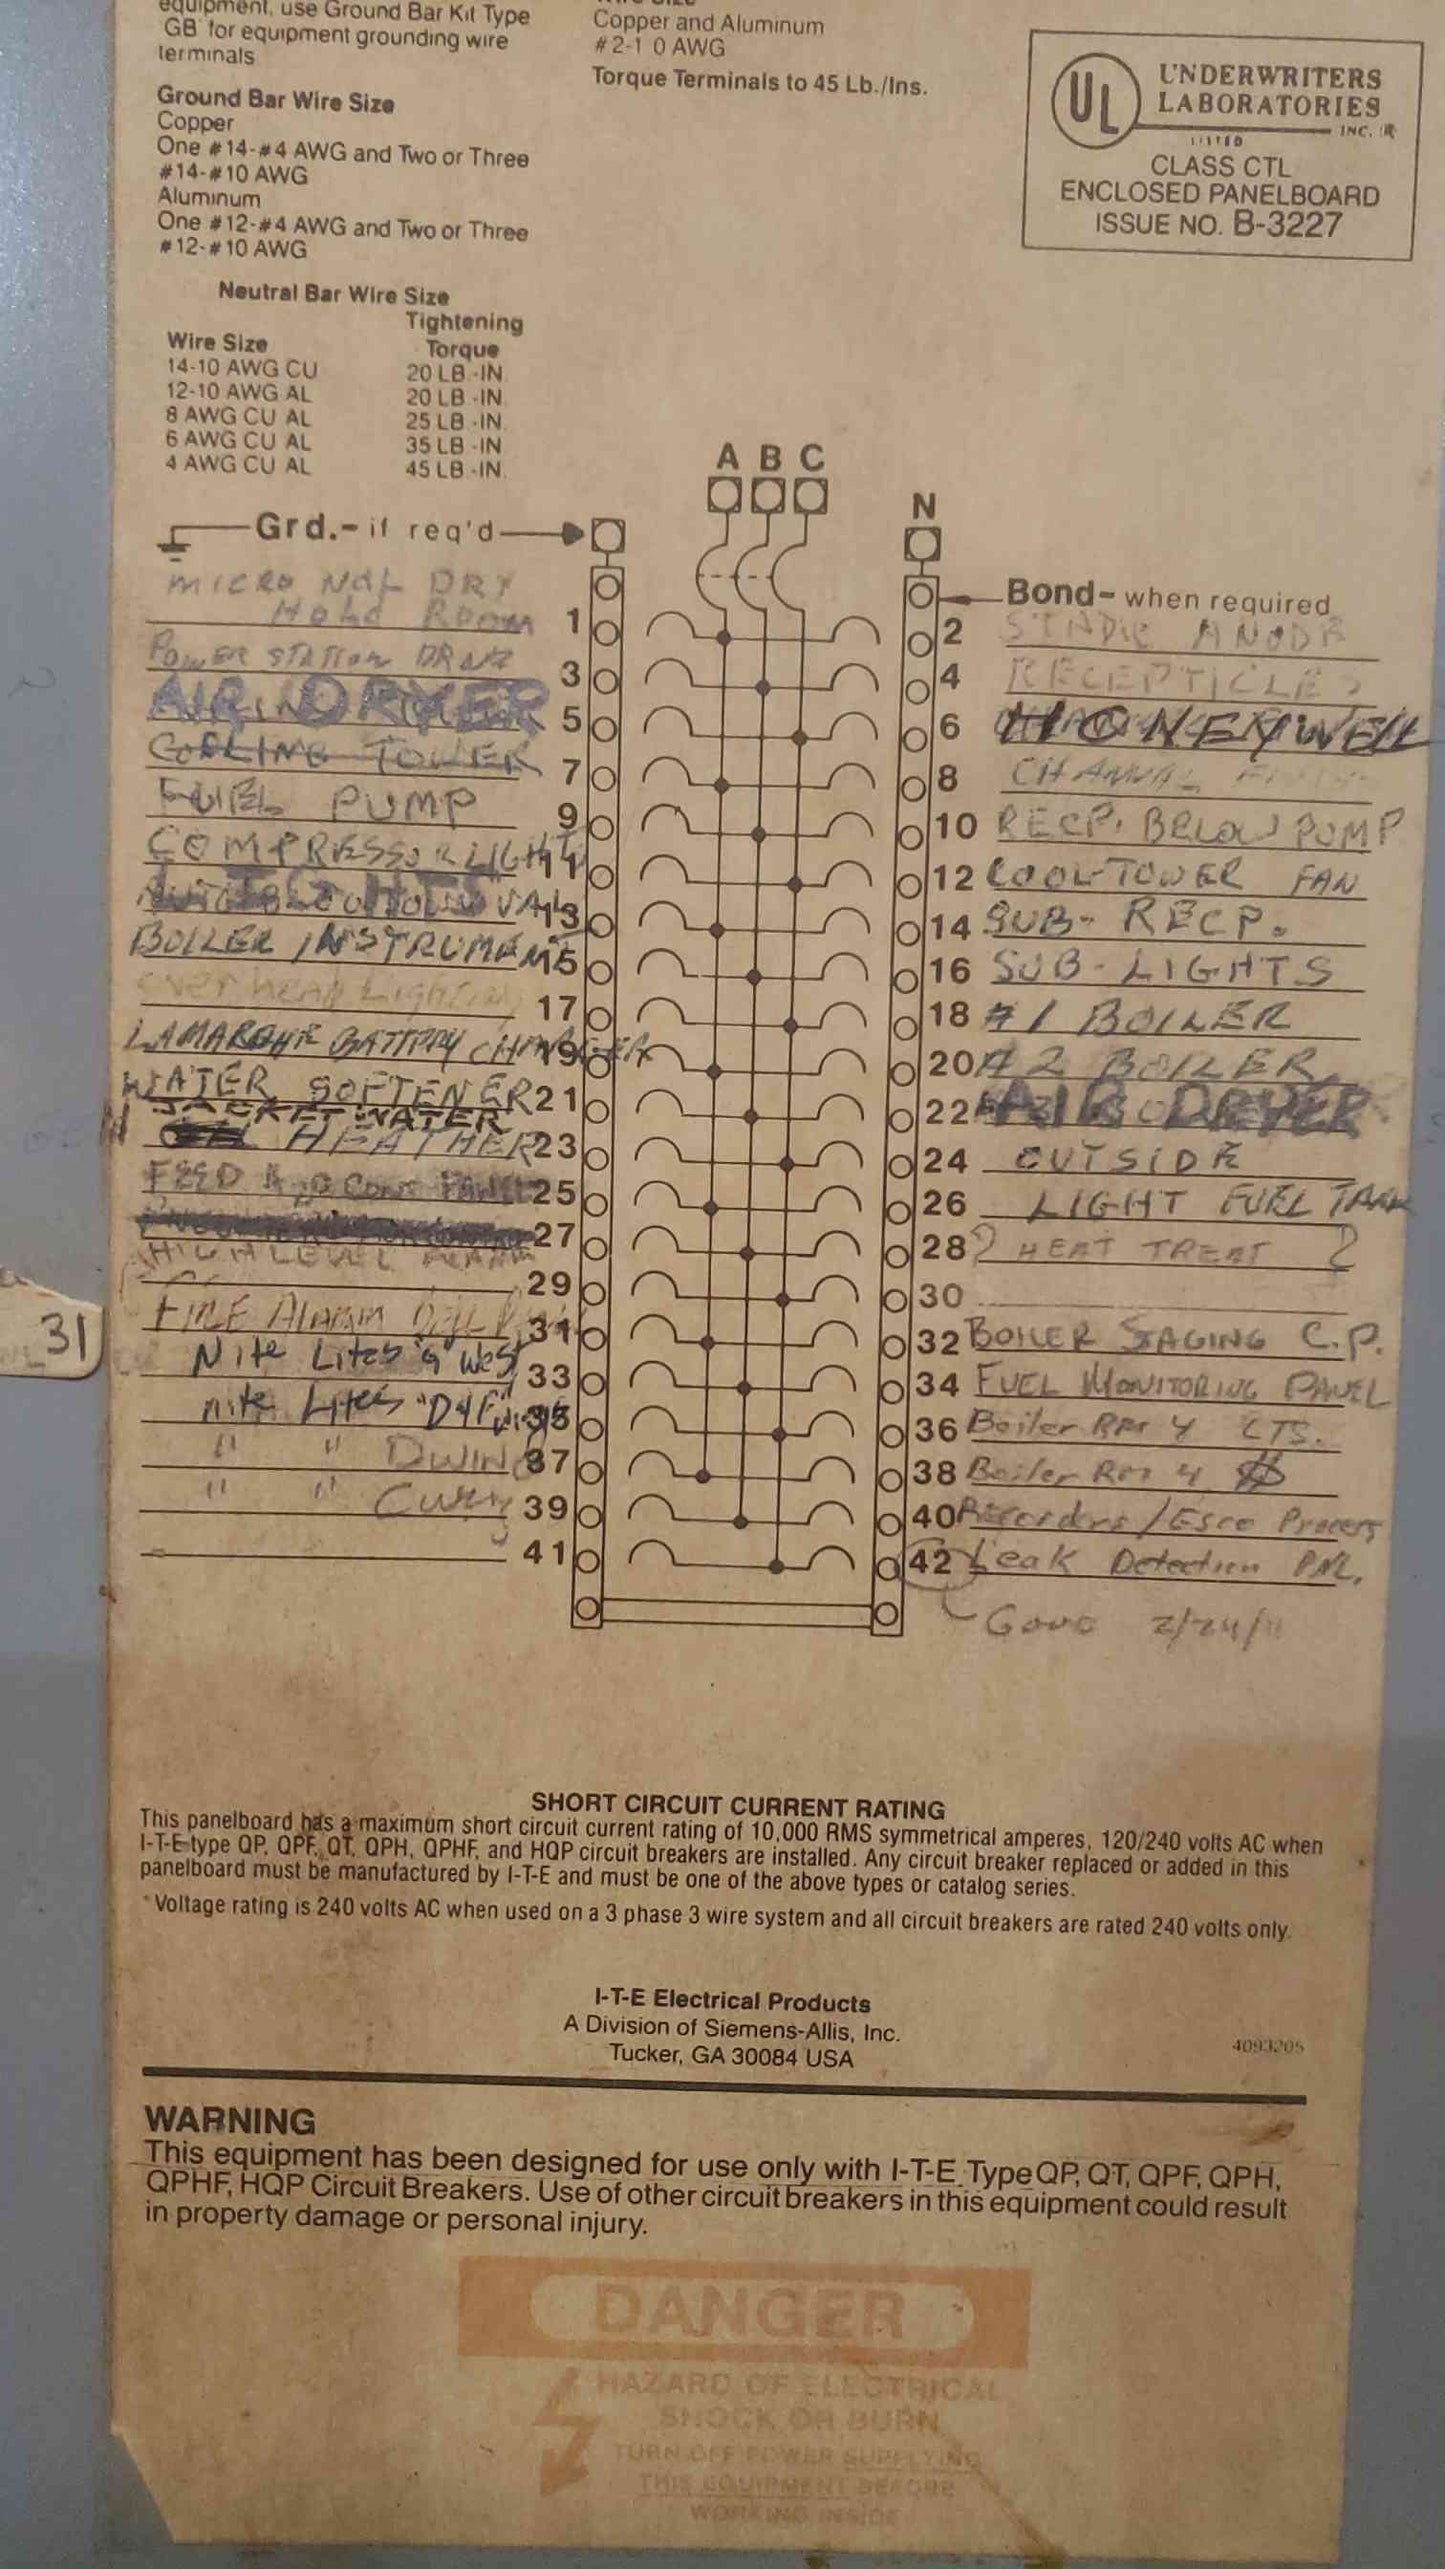 equipment, use Ground Bar Kit Type
GB for equipment grounding wire
terminals
Ground Bar Wire Size
Copper
One #14-#4 AWG and Two or Three
#14-#10 AWG
Aluminum
One #12-#4 AWG and Two or Three
#12-#10 AWG
Copper and Aluminum
#2-1 0 AWG
Torque Terminals to 45 Lb./Ins.
UL
UNDERWRITERS
LABORATORIES
INC. ®
LISTED
CLASS CTL
ENCLOSED PANELBOARD
ISSUE NO. B-3227
Neutral Bar Wire Size
Tightening
Wire Size Torque
14-10 AWG CU 20 LB.-IN.
12-10 AWG AL 20 LB.-IN.
8 AWG CU AL 25 LB.-IN.
6 AWG CU AL 35 LB.-IN
4 AWG CU AL 45 LB.-IN.
A B C
N
Grd.-if req'd
Bond-when required
MICRO DRY
HOLD ROOM 1
2
POWER STATION 3
4 RECEPTICLES
AIR DRYER 5
6 HONEYWELL
COOLING TOWER 7
8 CHANNAL
FUEL PUMP 9
10 RECP. BELOW PUMP
COMPRESSOR LIGHTS 11
12 COOL-TOWER FAN
LIGHTS 13
14 SUB-RECP.
BOILER INSTRUMENTS 15
16 SUB-LIGHTS
OVERHEAD LIGHTING 17
18 #1 BOILER
LAMARCHE BATTERY CHARGER 19
20 #2 BOILER
WATER SOFTENER 21
22 AIR DRYER
JACKET WATER
HEATHER 23
24 OUTSIDE
FEED H2O CONT PANEL 25
26 LIGHT FUEL TANK
27
28 ? HEAT TREAT ?
HIGH LEVEL ALARM
29
30
FIRE Alarm 31
32 BOILER STAGING C.P.
Nite Lites "G" West 33
34 FUEL MONITORING PANEL
Nite Lites "D4F" 35
36 Boiler Rm 4 CTS.
" " DWING 37
38 Boiler Rm 4
" " 39
40 Recorders/Esco Process
41
42 Leak Detection PNL.
Good 2/24/11
31
SHORT CIRCUIT CURRENT RATING
This panelboard has a maximum short circuit current rating of 10,000 RMS symmetrical amperes, 120/240 volts AC when
I-T-E type QP, QPF, QT, QPH, QPHF, and HQP circuit breakers are installed. Any circuit breaker replaced or added in this
panelboard must be manufactured by I-T-E and must be one of the above types or catalog series.
*Voltage rating is 240 volts AC when used on a 3 phase 3 wire system and all circuit breakers are rated 240 volts only.
I-T-E Electrical Products
A Division of Siemens-Allis, Inc.
Tucker, GA 30084 USA
4093205
WARNING
This equipment has been designed for use only with I-T-E Type QP, QT, QPF, QPH,
QPHF, HQP Circuit Breakers. Use of other circuit breakers in this equipment could result
in property damage or personal injury.
DANGER
HAZARD OF ELECTRICAL
SHOCK OR BURN
TURN OFF POWER SUPPLYING
THIS EQUIPMENT BEFORE
WORKING INSIDE